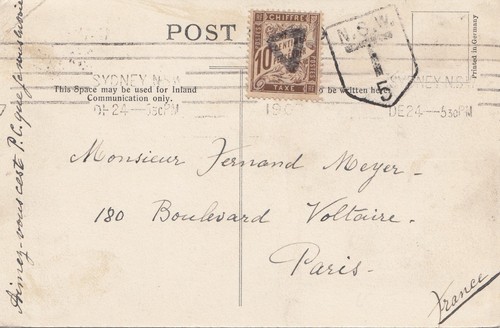 POST
Printed in Germany
CHIFFRE
10
CENTI
TAXE
N.S.W.
T
5
SYDNEY N.S.W.
SYDNEY N.S.W.
This Space may be used for Inland
Communication only.
to be written here
DE24-530PM
19
DE24-530PM
Monsieur Fernand Meyer-
180 Boulevard Voltaire.
Paris-
France
Aimez-vous cest P.C. que je vous